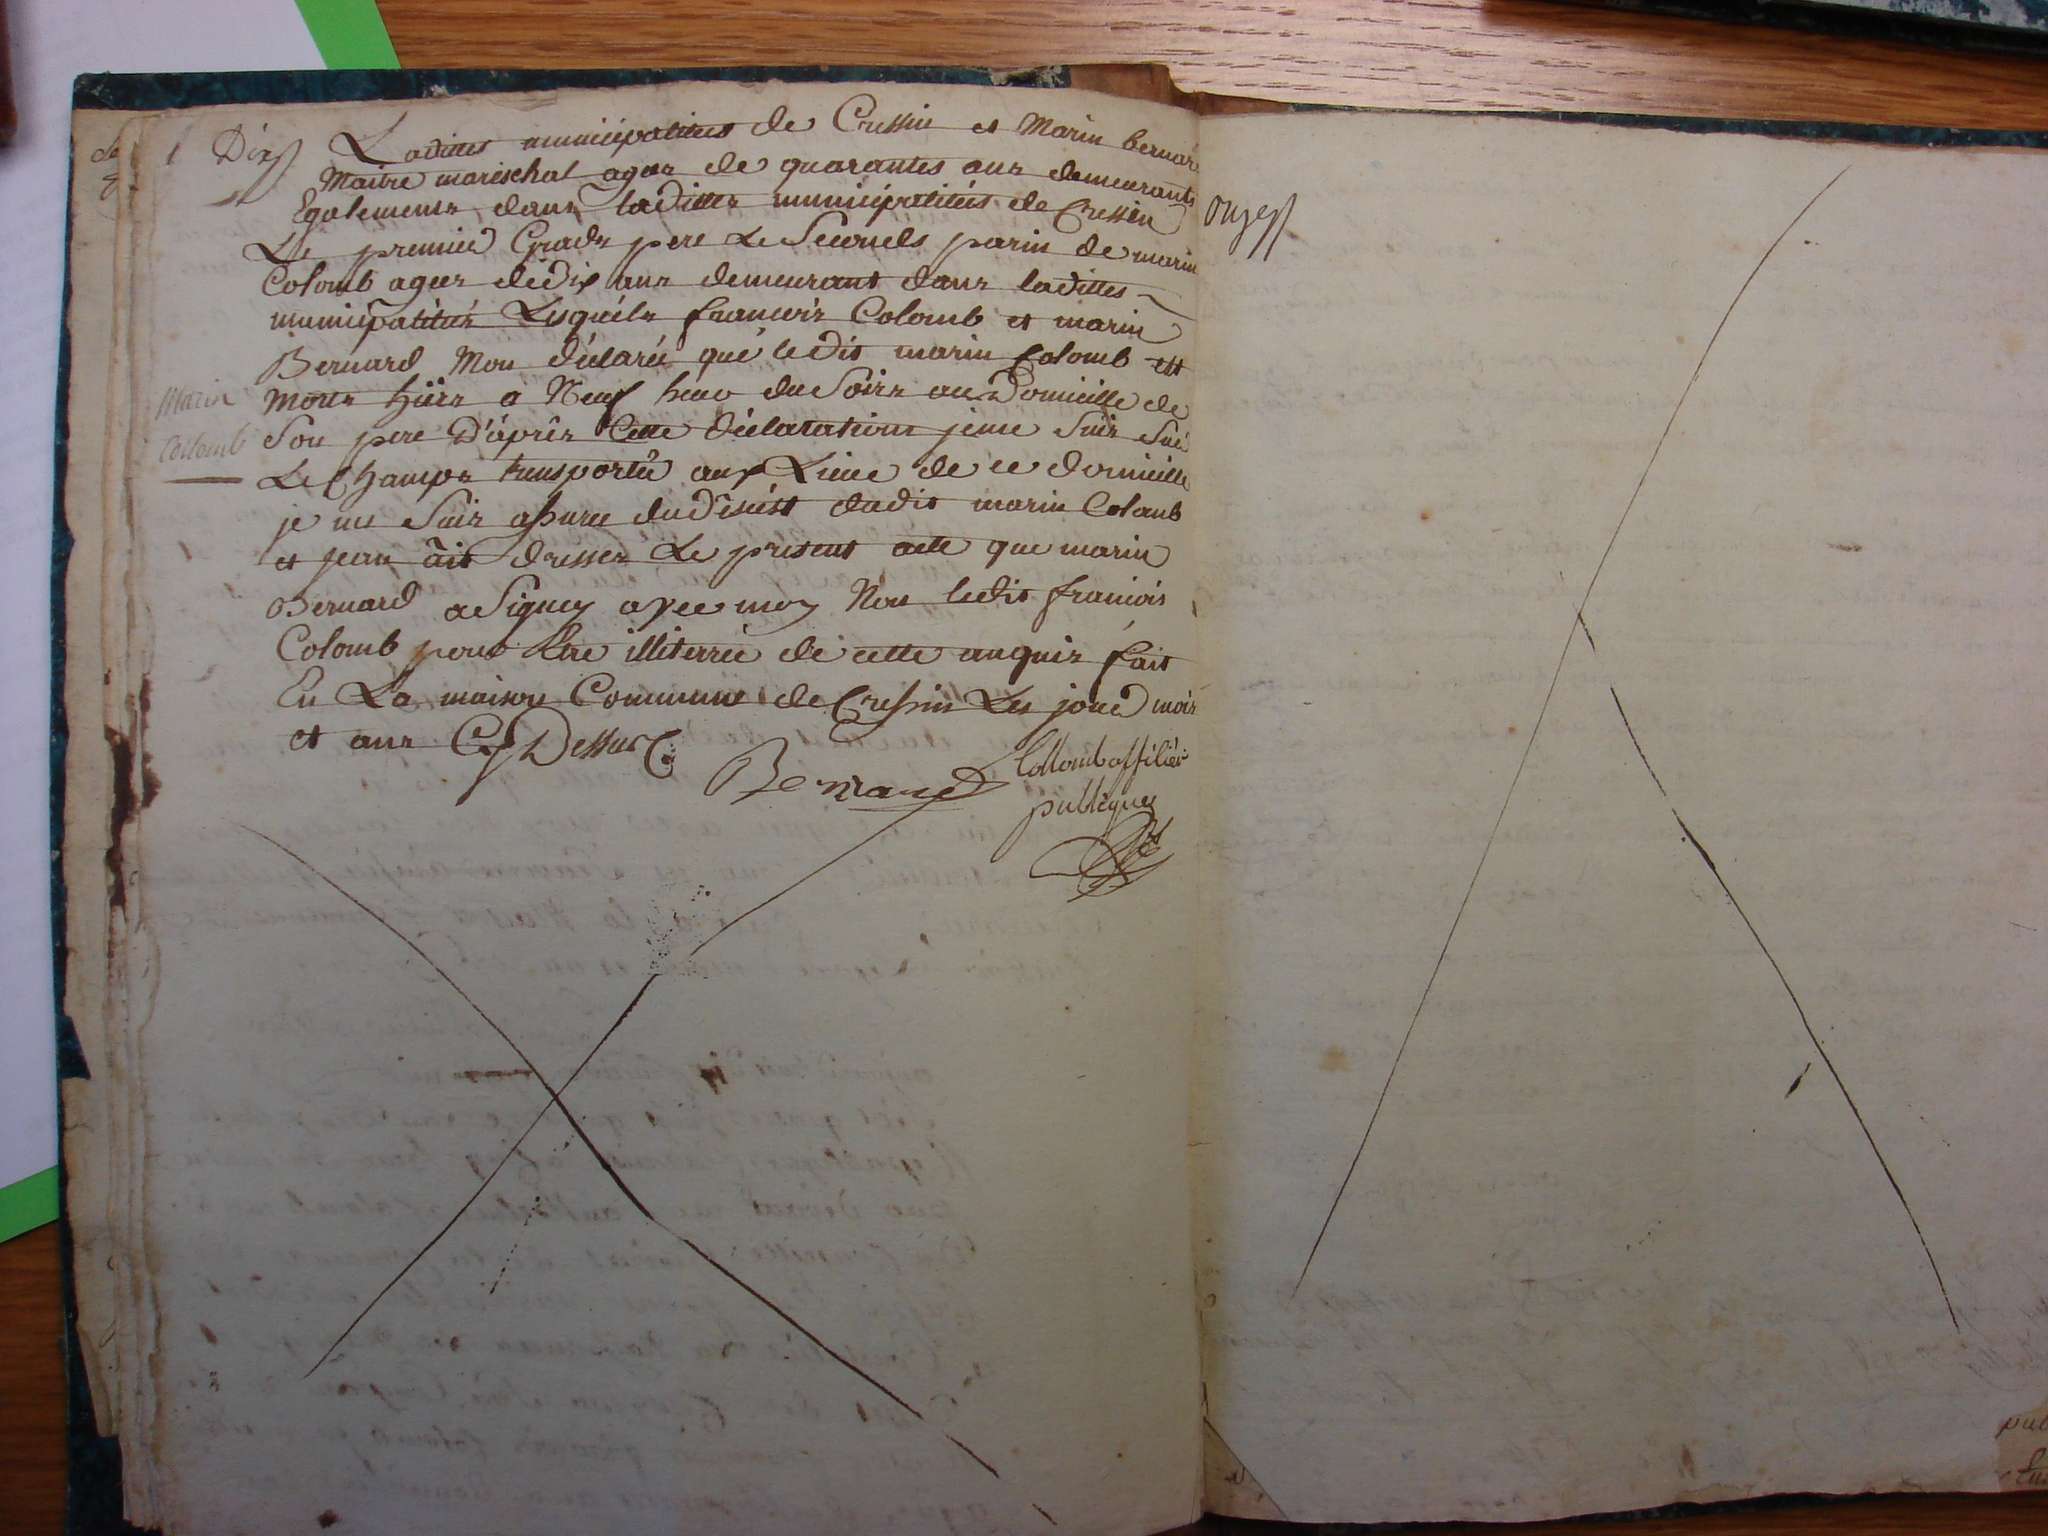 Dix
Ladittes municipalitées de Cressin et Marin bernard
Maitre mareschal agez de quarantes ans demeurants
Egalements dans laditte municipalitéis de Cressin
Le premier Grads pere Le Seconds parin de marin
Colomb agees de dix ans demeurant dans ladittes
municipalitées Lesquéls francois Colomb et marin
Bernard Mon déclaréé que ledit marin Colomb est
Morts hiérs a Neuf heur du Soirs au Domicille de
Marin
Colomb
Son pere D'áprês Cette Déclarations jeme Suis Sur
Le Champs transportée aux Lieux de ce domicille
je me Suis assuree du déséss dudit marin Colomb
et jean ait dresser Le present acte que marin
Bernard a Signez avec moy Non ledit francois
Colomb pour Etre illiterrée de cette anquir fait
En La maison Commune de Cressin Les jour mois
et ans Cy Dessus
Bernard
Collomb offiliér
publique
Onze